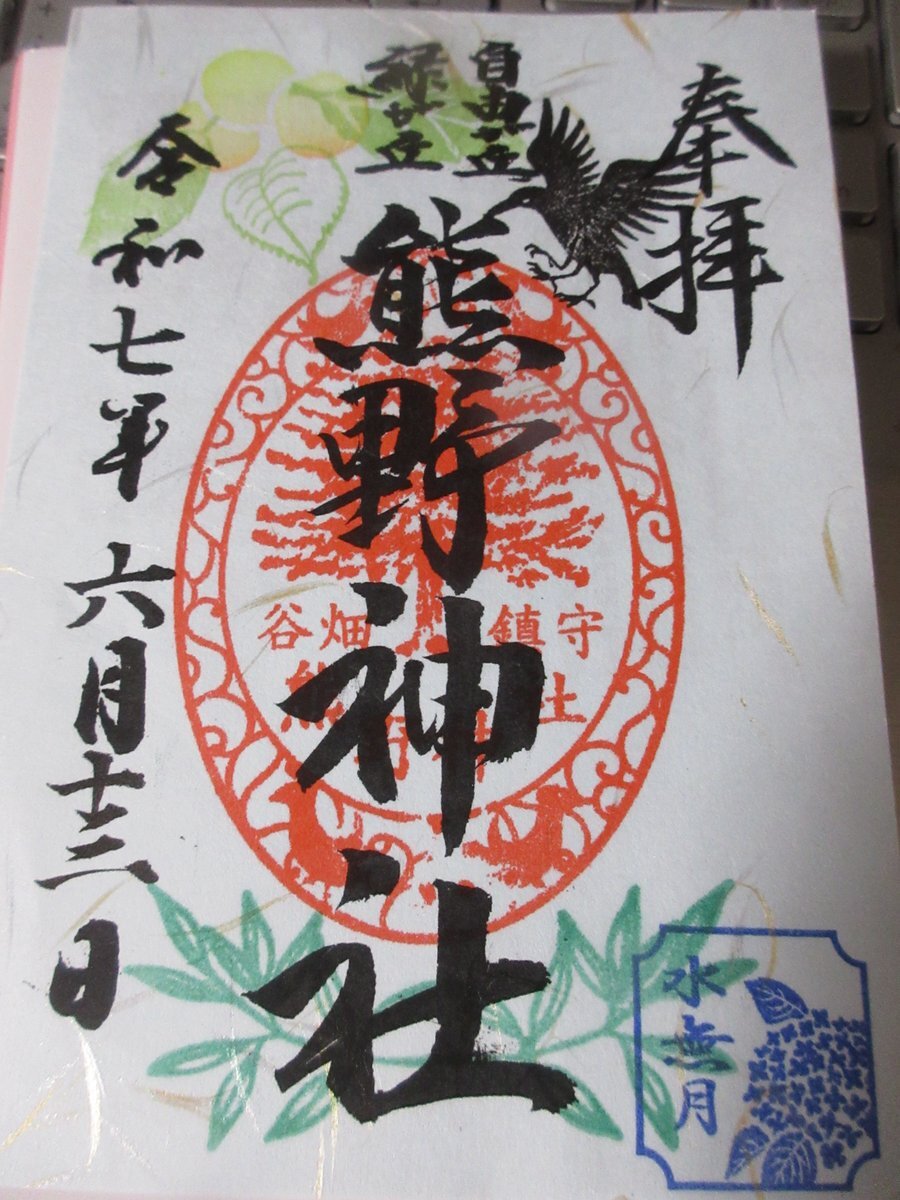 奉拝
自由が丘
緑が丘
熊野神社
令和七年六月十三日
谷畑 鎮守
熊野神社
水無月